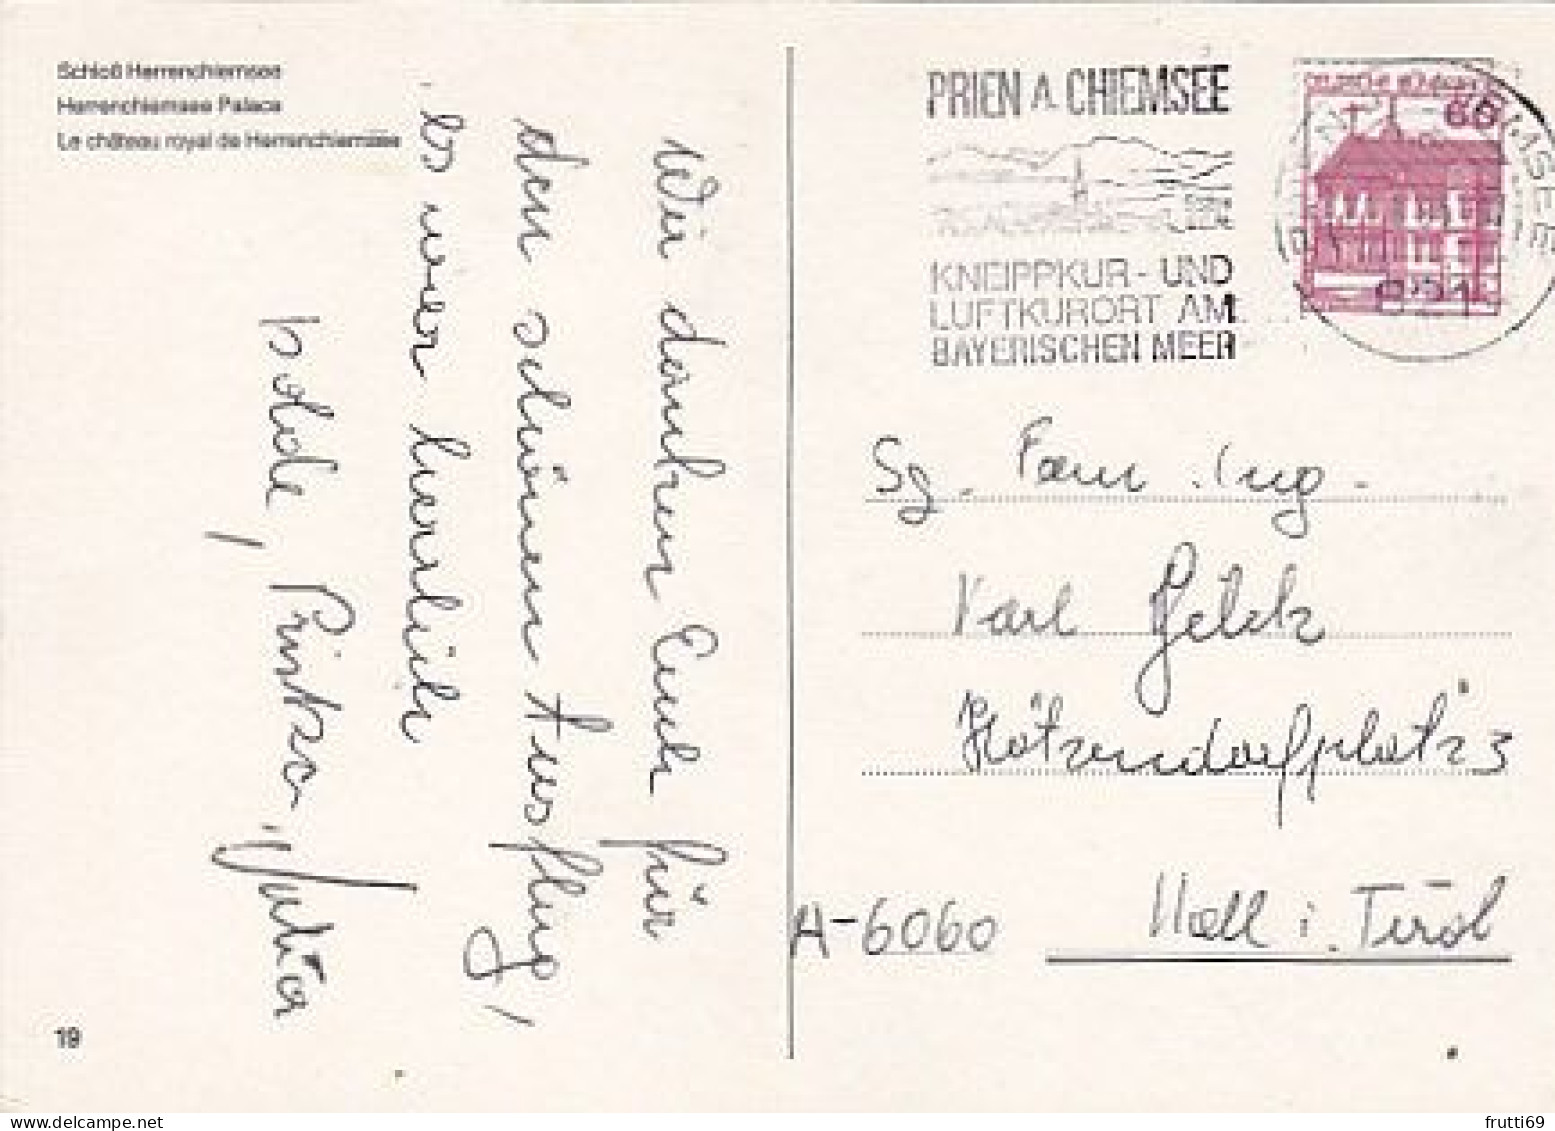 Schloß Herrenchiemsee
Herrenchiemsee Palace
Le château royal de Herrenchiemsee
Wir danken Euch für
den schönen Ausflug,
es war herrlich
Isolde,
Julia
19
PRIEN A. CHIEMSEE
KNEIPPKUR- UND
LUFTKURORT AM
BAYERISCHEN MEER
60
8210
Sg. Fam. Ing.
Karl
Hötzendorfplatz 3
A-6060 Hall i. Tirol
frutti69